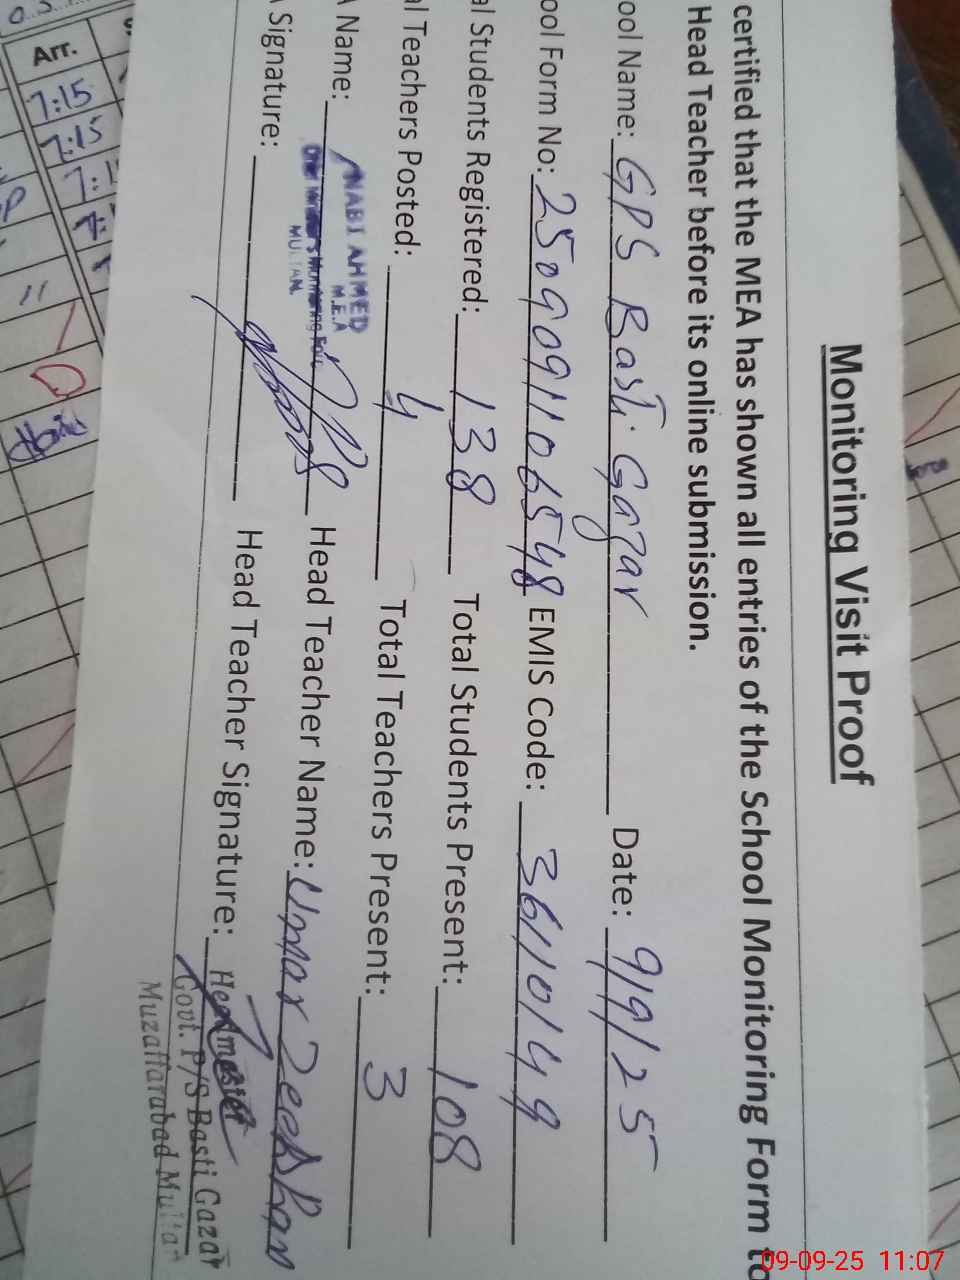 Monitoring Visit Proof
certified that the MEA has shown all entries of the School Monitoring Form to
Head Teacher before its online submission.
ool Name: GPS Basti Gazar Date: 9/9/25
ool Form No: 2509091106548 EMIS Code: 36110149
al Students Registered: 138 Total Students Present: 108
al Teachers Posted: 4 Total Teachers Present: 3
A Name: NABI AHMED Head Teacher Name: Umar Zeeshan
M.E.A
MULTAN.
A Signature: Head Teacher Signature: Headmaster
Govt. P/S Basti Gazar
Muzaffarabad Multan
Arr.
7:15
7:15
09-09-25 11:07